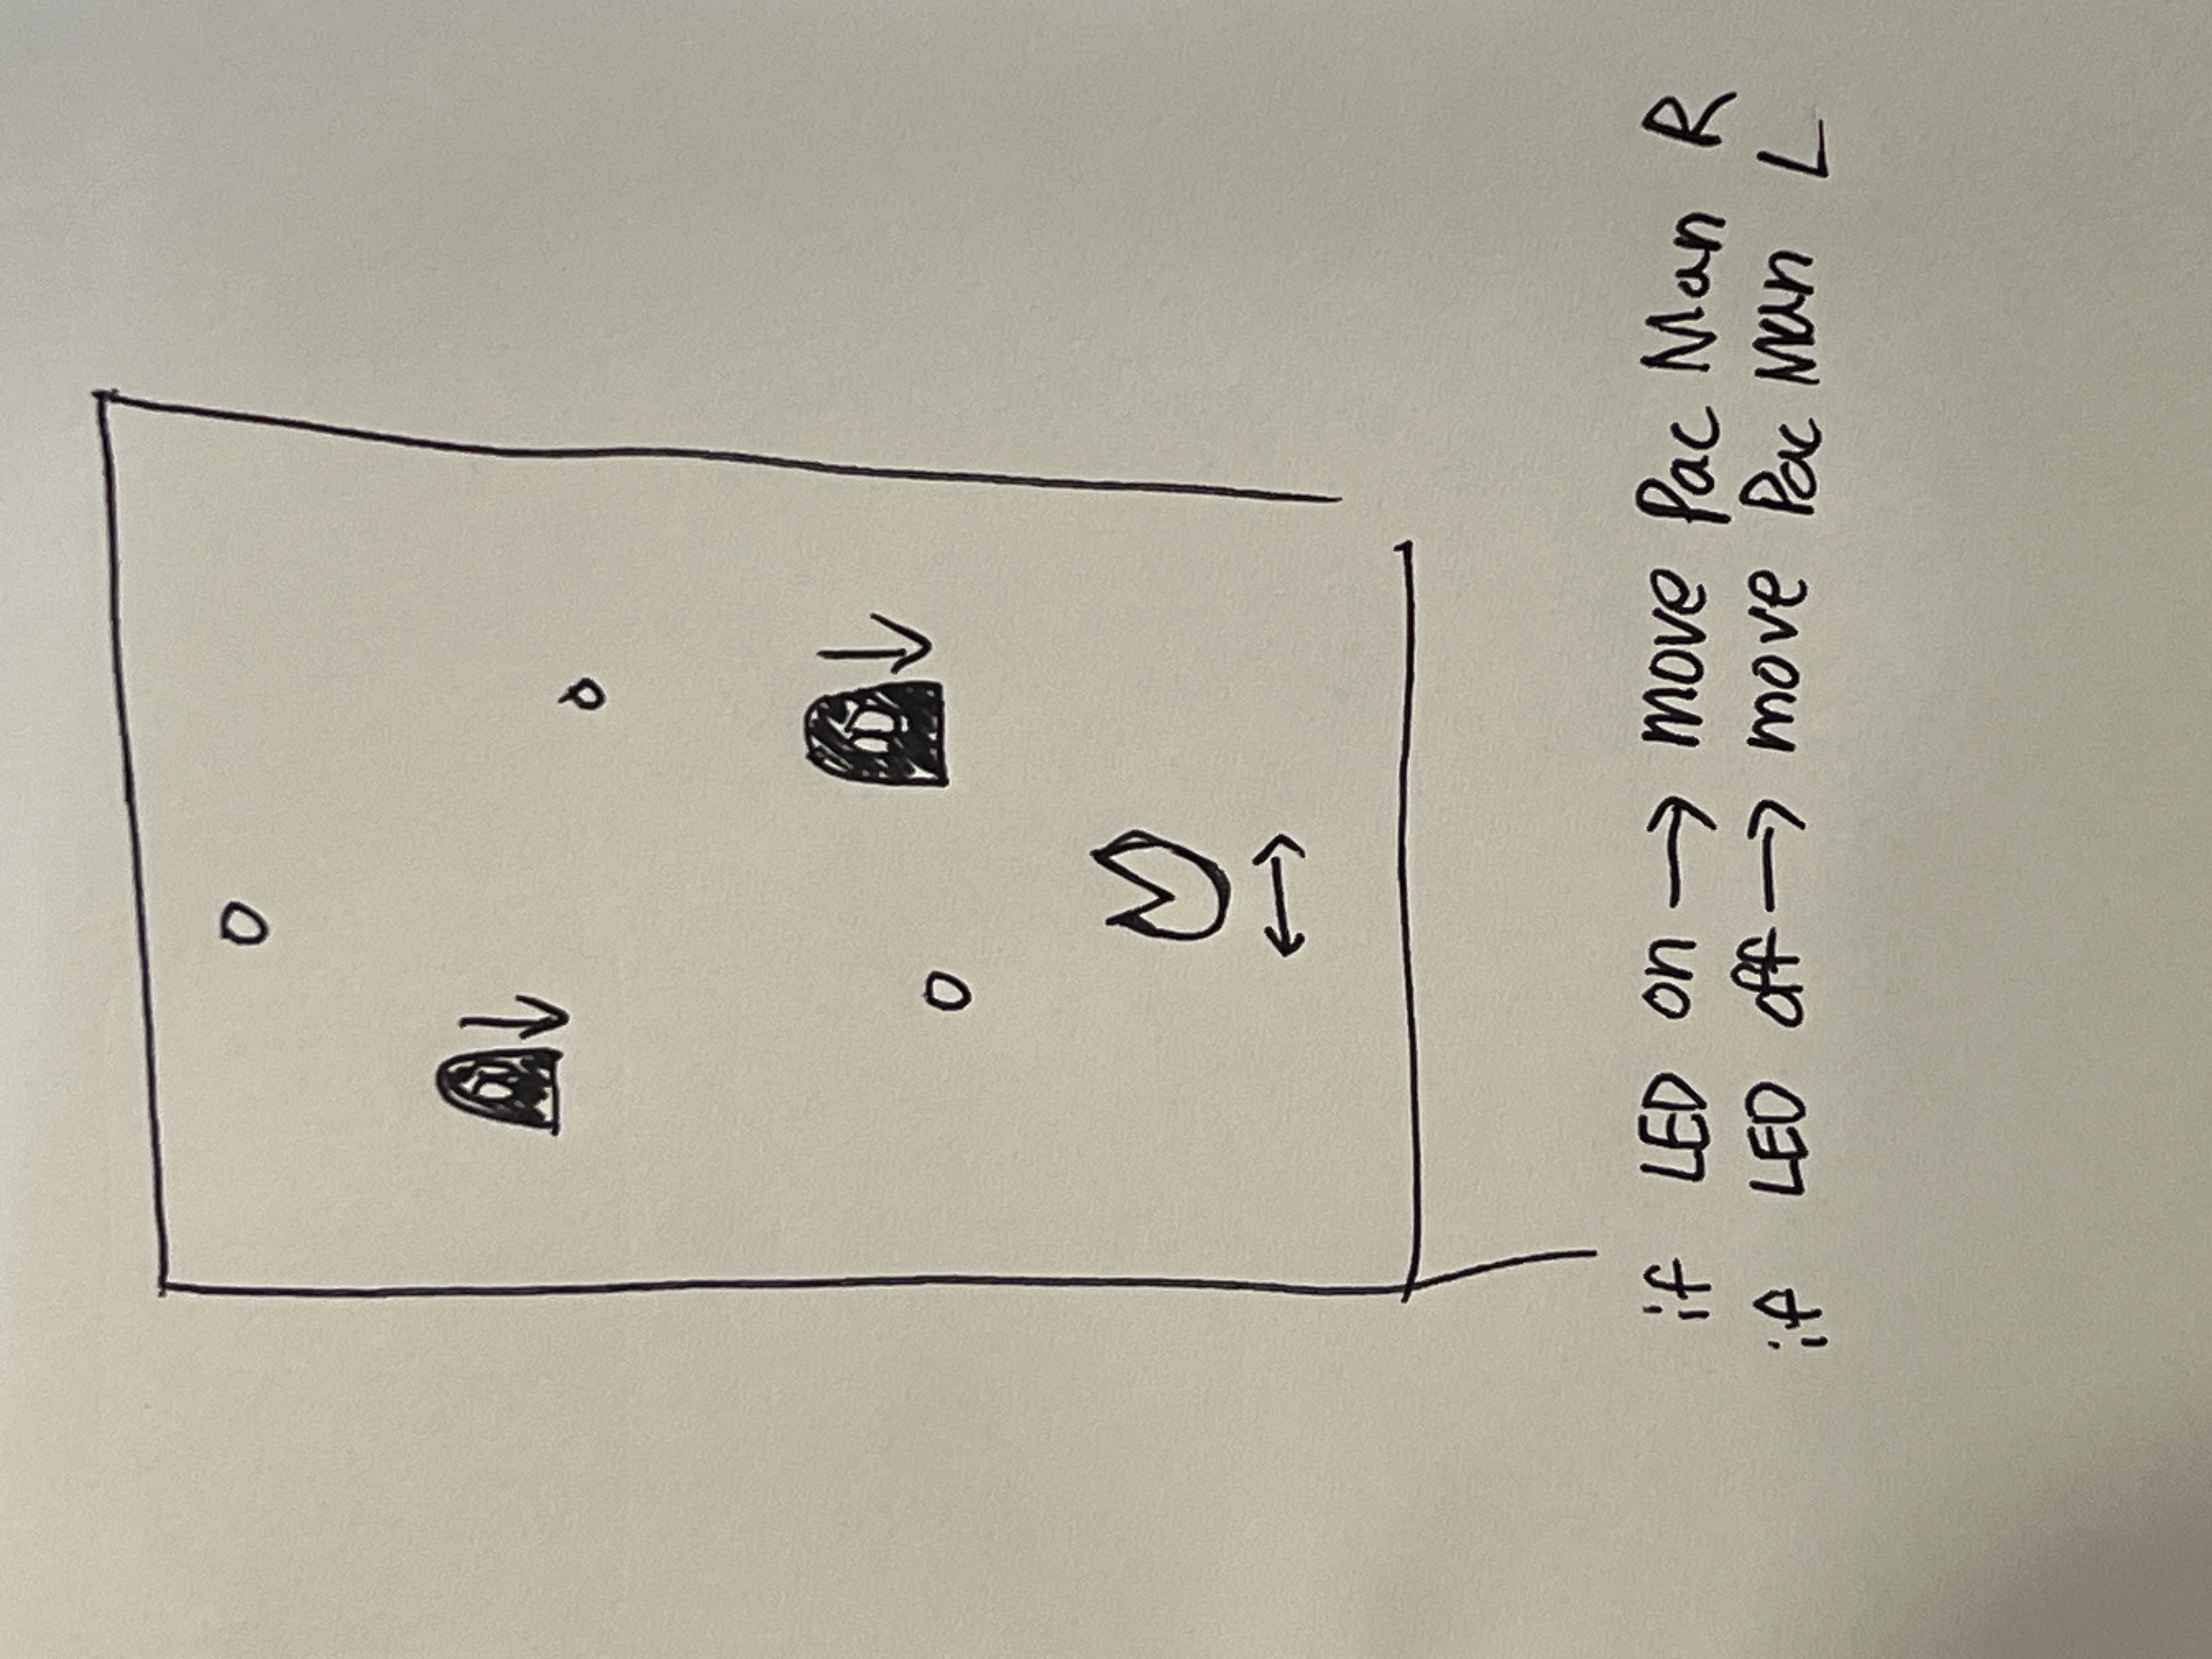 if LED on → move Pac Man R
if LED off → move Pac Man L